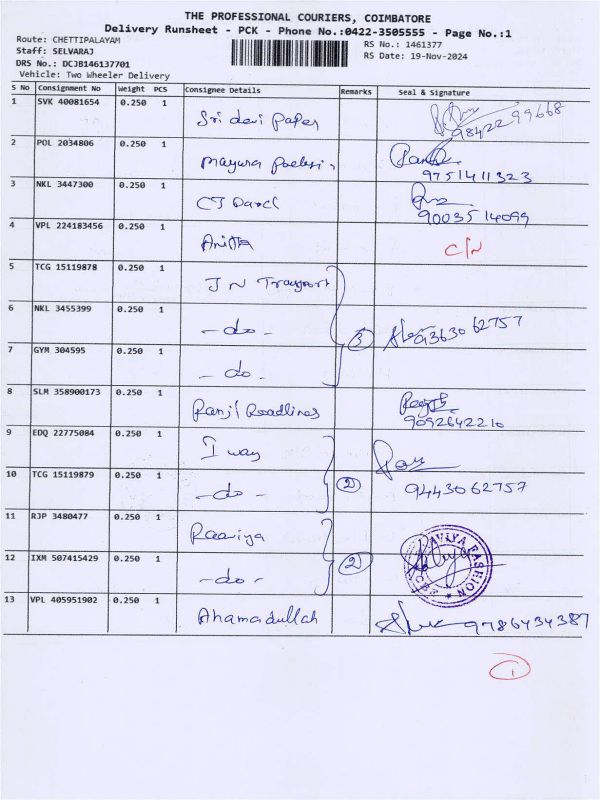 THE PROFESSIONAL COURIERS, COIMBATORE
Delivery Runsheet - PCK - Phone No.:0422-3505555 - Page No.:1
Route: CHETTIPALAYAM
RS No.: 1461377
Staff: SELVARAJ
RS Date: 19-Nov-2024
DRS No.: DCJB146137701
Vehicle: Two Wheeler Delivery
S No Consignment No Weight PCS Consignee Details Remarks Seal & Signature
1 SVK 40081654 0.250 1 Sri devi Paper 9842299668
2 POL 2034806 0.250 1 Mayura 9751411323
3 NKL 3447300 0.250 1 CJ 9003514099
4 VPL 224183456 0.250 1 Anitta C/N
5 TCG 15119878 0.250 1 J N Transport
6 NKL 3455399 0.250 1 -do- 3 9363062757
7 GYM 304595 0.250 1 -do-
8 SLM 358900173 0.250 1 Ranjit Roadlines 9092642210
9 EDQ 22775084 0.250 1 I way
10 TCG 15119879 0.250 1 -do- 2 9443062757
11 RJP 3480477 0.250 1 Raaviya
12 IXM 507415429 0.250 1 -do- 2 FASHION
13 VPL 405951902 0.250 1 Ahamadullah 9786434387
1